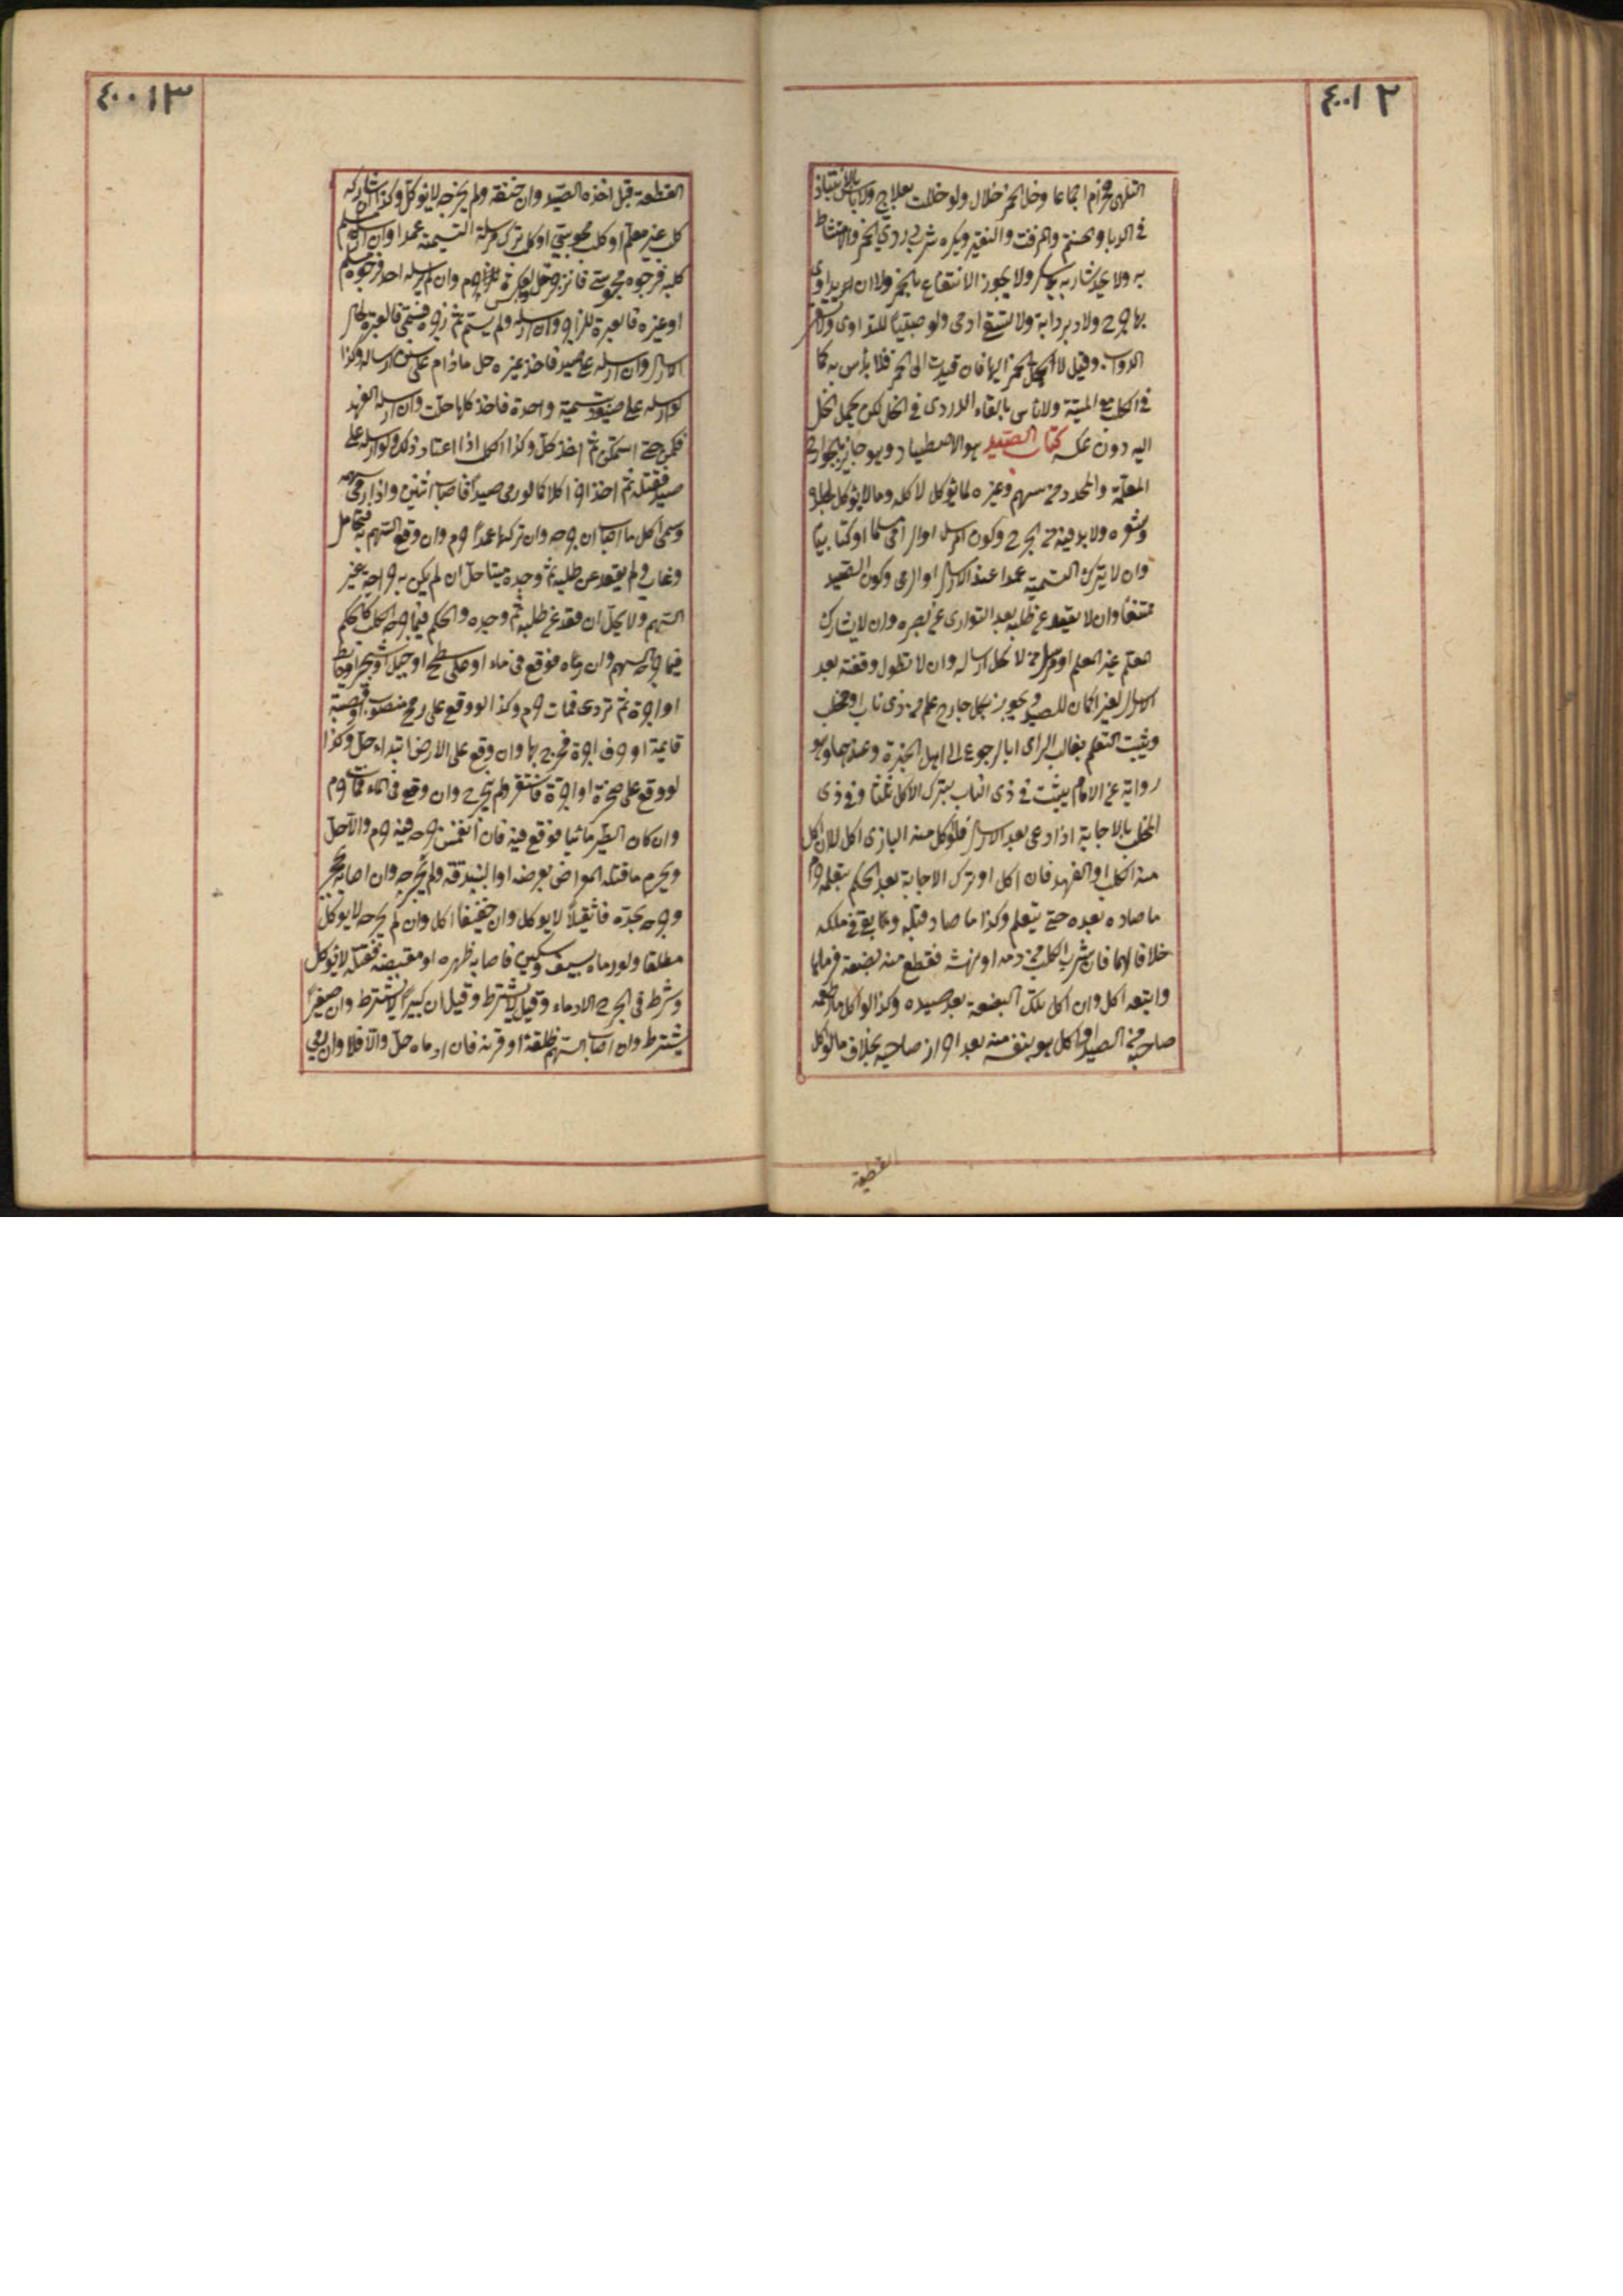 ٤٠٠١٢
التلهى حرام اجماعا وخل الخمر حلال ولو خللت بعلاج ولا باس بالانتباذ
فى الدبا والحنتم والمزفت والنقير ويكره شرب دردى الخمر والامتشاط
به ولا يحد شاربه بلا سكر ولا يجوز الانتفاع بالخمر ولا ان يداوى
بها جرح ولا دبر دابة ولا تسقى ادمى ولو صبيّا للتداوى ولا تسقى
الدواب وقيل لا تحمل الخمر اليها فان قيدت الى الخمر فلا بأس به كما
فى الكلب مع الميتة ولا باس بالقاء الدردى فى الخل لكن يحمل الخل
اليه دون عكسه كتاب الصيد هو الاصطياد وهو جايز بالجوارح
المعلمة والمحدد من سهم وغيره لما يؤكل لاكله وما لا يؤكل لجلده
وشعره ولا بد فيه من الجرح وكون المرسل او الرامى مسلما او كتابيّا
وان لا يترك التسمية عمدا عند الارسال او الرمى وكون الصيد
ممتنعا وان لا يقعد عن طلبه بعد التوارى عن بصره وان لا يشارك
المعلم غير المعلم او مرسل من لا يحل ارساله وان لا تطول وقفته بعد
الارسال لغير اكمان للصيد ويجوز بكل جارح علم من ذى ناب او مخلب
ويثبت التعلم بغالب الراى او بالرجوع الى اهل الخبرة وعندهما وهو
رواية عن الامام يثبت فى ذى الناب بترك الاكل ثلثا وفى ذى
المخلب بالاجابة اذا دعى بعد الارسال فلو اكل منه البازى اكل لا ان اكل
منه الكلب او الفهد فان اكل او ترك الاجابة بعد الحكم بتعلمه حرم
ما صاده بعده حتى يتعلم وكذا ما صاد قبله وما بقى فى ملكه
خلافا لهما فان شرب الكلب من دمه او نهشه فقطع منه بضعة فرماها
واتبعه اكل وان اكل تلك البضعة بعد صيده وكذا لو اكل ما اطعمه
صاحبه من الصيد او اكل هو بنفسه منه بعد احراز صاحبه بخلاف ما لو اكل
القطعة
٤٠٠١٣
القطعة قبل اخذه الصيد وان خنقه ولم يجرحه لا يؤكل وكذا ان شاركه
كلب غير معلم او كلب مجوسى او كلب ترك مرسله التسمية عمدا وان ارسل مسلم
كلبه فزجره مجوسى فانزجر حل وبالعكس حرم وان لم يرسله احد فزجره مسلم
او غيره فالعبرة للزاجر وان ارسله ولم يسم ثم زجره فسمى فالعبرة لحال
الارسال وان ارسله على صيد فاخذ غيره حل ما دام على سنن ارساله وكذا
لو ارسله على صيود بتسمية واحدة فاخذ كلها حلت وان ارسله الفهد
فكمن حتى استمكن ثم اخذ حل وكذا الكلب اذا اعتاد ذلك ولو ارسله على
صيد فقتله ثم اخذ آخر اكلا كما لو رمى صيدا فاصاب اثنين واذا رمى سهمه
وسمى اكل ما اصاب ان جرحه وان تركها عمدا حرم وان وقع السهم به فتحامل
وغاب ولم يقعد عن طلبه ثم وجده ميتا حل ان لم يكن به جراحة غير
السهم ولا يحل ان قعد عن طلبه ثم وجده والحكم فيما جرحه الكلب كالحكم
فيما جرحه السهم وان رماه فوقع فى ماء او على سطح او جبل او شجر او حائط
او اجرة ثم تردى فمات حرم وكذا لو وقع على رمح منصوب او قصبة
قايمة او حرف اجرة فجرح بها وان وقع على الارض ابتداء حل وكذا
لو وقع على صخرة او اجرة فاستقر ولم يجرح وان وقع فى الماء فمات حرم
وان كان الطير مائيا فوقع فيه فان انغمس جرحه فيه حرم والا حل
ويحرم ما قتله المعراض بعرضه او البندقة ولم يجرحه وان اصابه بحجر
وجرحه بحده فان ثقيلا لا يؤكل وان خفيفا اكل وان لم يجرحه لا يؤكل
مطلقا ولو رماه بسيف او سكين فاصابه ظهره او مقبضه فقتله لا يؤكل
وشرط فى الجرح الادماء وقيل لا يشترط وقيل ان كبيرا لا يشترط وان صغيرا
يشترط وان اصاب السهم ظلفه او قرنه فان ادماه حل والا فلا وان رمى